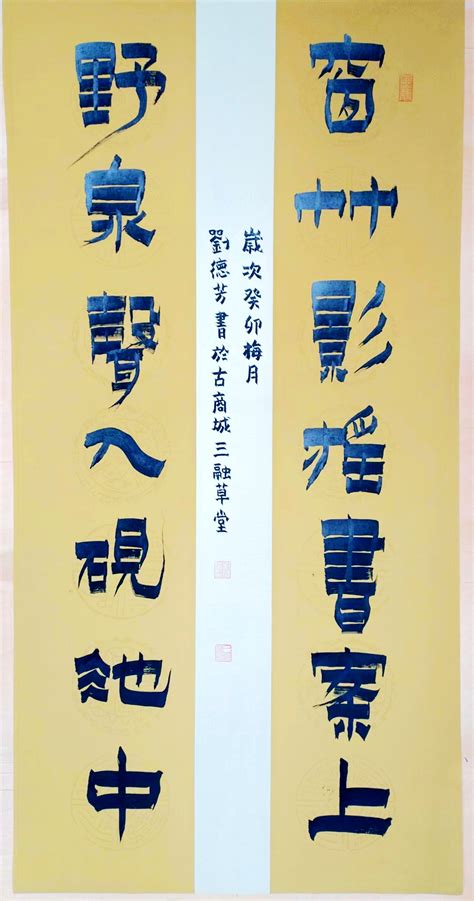 窗艸影摇書案上
歲次癸卯梅月
劉德芳書於古商城三融草堂
野泉聲入硯池中